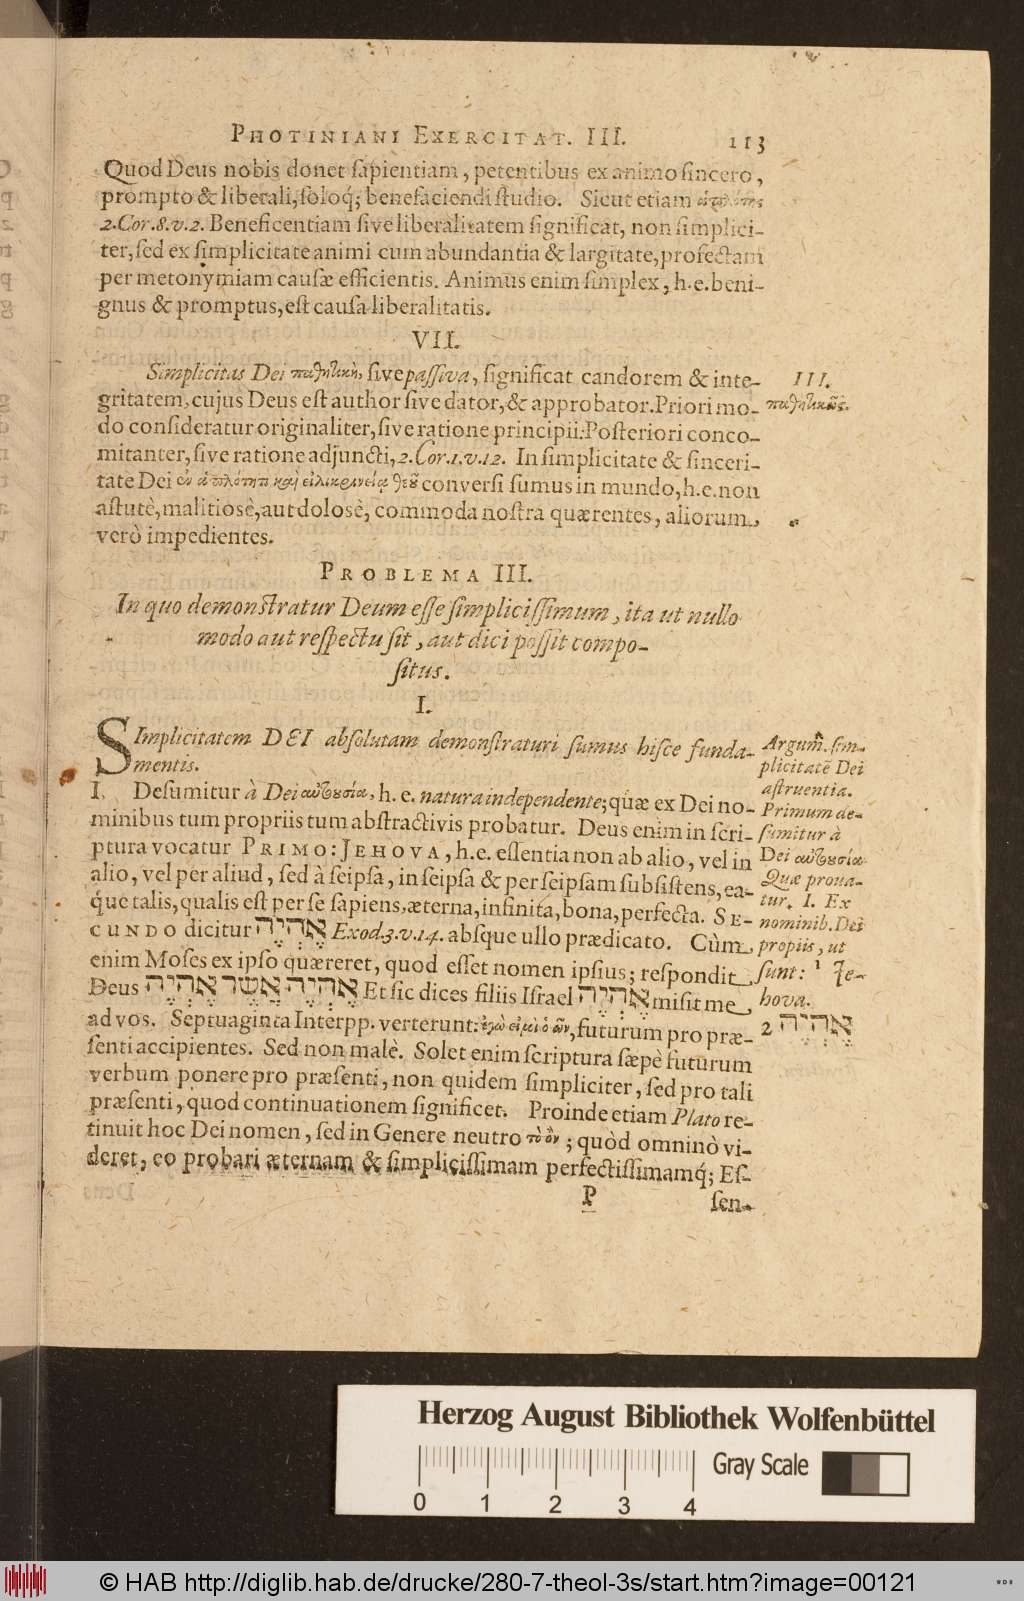 PHOTINIANI EXERCITAT. III. 113
Quod Deus nobis donet sapientiam, petentibus ex animo sincero,
prompto & liberali, soloq́; benefaciendi studio. Sicut etiam ἁπλότης
2. Cor. 8. v. 2. Beneficentiam sive liberalitatem significat, non simplici-
ter, sed ex simplicitate animi cum abundantia & largitate, profectam
per metonymiam causæ efficientis. Animus enim simplex, h. e. beni-
gnus & promptus, est causa liberalitatis.
VII.
Simplicitas Dei παθητικὴ, sive passiva, significat candorem & inte-
gritatem, cujus Deus est author sive dator, & approbator. Priori mo-
do consideratur originaliter, sive ratione principii: Posteriori conco-
mitanter, sive ratione adjuncti, 2. Cor. 1. v. 12. In simplicitate & sinceri-
tate Dei ἐν ἁπλότητι καὶ εἰλικρινείᾳ θεοῦ conversi sumus in mundo, h. e. non
astutè, malitiosè, aut dolosè, commoda nostra quærentes, aliorum
verò impedientes.
III.
παθητικῶς.
PROBLEMA III.
In quo demonstratur Deum esse simplicissimum, ita ut nullo
modo aut respectu sit, aut dici possit compo-
situs.
I.
SImplicitatem DEI absolutam demonstraturi sumus hisce funda-
mentis.
I. Desumitur à Dei αὐτουσίᾳ, h. e. natura independente; quæ ex Dei no-
minibus tum propriis tum abstractivis probatur. Deus enim in scri-
ptura vocatur PRIMO: JEHOVA, h. e. essentia non ab alio, vel in
alio, vel per aliud, sed à seipsa, in seipsa & per seipsam subsistens, ea-
q́ue talis, qualis est per se sapiens, æterna, infinita, bona, perfecta. SE-
CUNDO dicitur אֶהְיֶה Exod. 3. v. 14. absque ullo prædicato. Cùm
enim Moses ex ipso quæreret, quod esset nomen ipsius; respondit
Deus אֶהְיֶה אֲשֶׁר אֶהְיֶה Et sic dices filiis Israel אֶהְיֶה misit me
ad vos. Septuaginta Interpp. verterunt: ἐγώ εἰμι ὁ ὢν, futurum pro præ-
senti accipientes. Sed non malè. Solet enim scriptura sæpè futurum
verbum ponere pro præsenti, non quidem simpliciter, sed pro tali
præsenti, quod continuationem significet. Proinde etiam Plato re-
tinuit hoc Dei nomen, sed in Genere neutro τὸ ὂν; quòd omninò vi-
deret, eo probari æternam & simplicissimam perfectissimamq́; Es-
P sen-
Argum̃. sim-
plicitatẽ Dei
astruentia.
Primum de-
sumitur à
Dei αὐτουσίᾳ
Quæ proba-
tur. I. Ex
nominib. Dei
propiis, ut
sunt: 1 Je-
hova.
2 אֶהְיֶה
Herzog August Bibliothek Wolfenbüttel
Gray Scale
0 1 2 3 4
© HAB http://diglib.hab.de/drucke/280-7-theol-3s/start.htm?image=00121